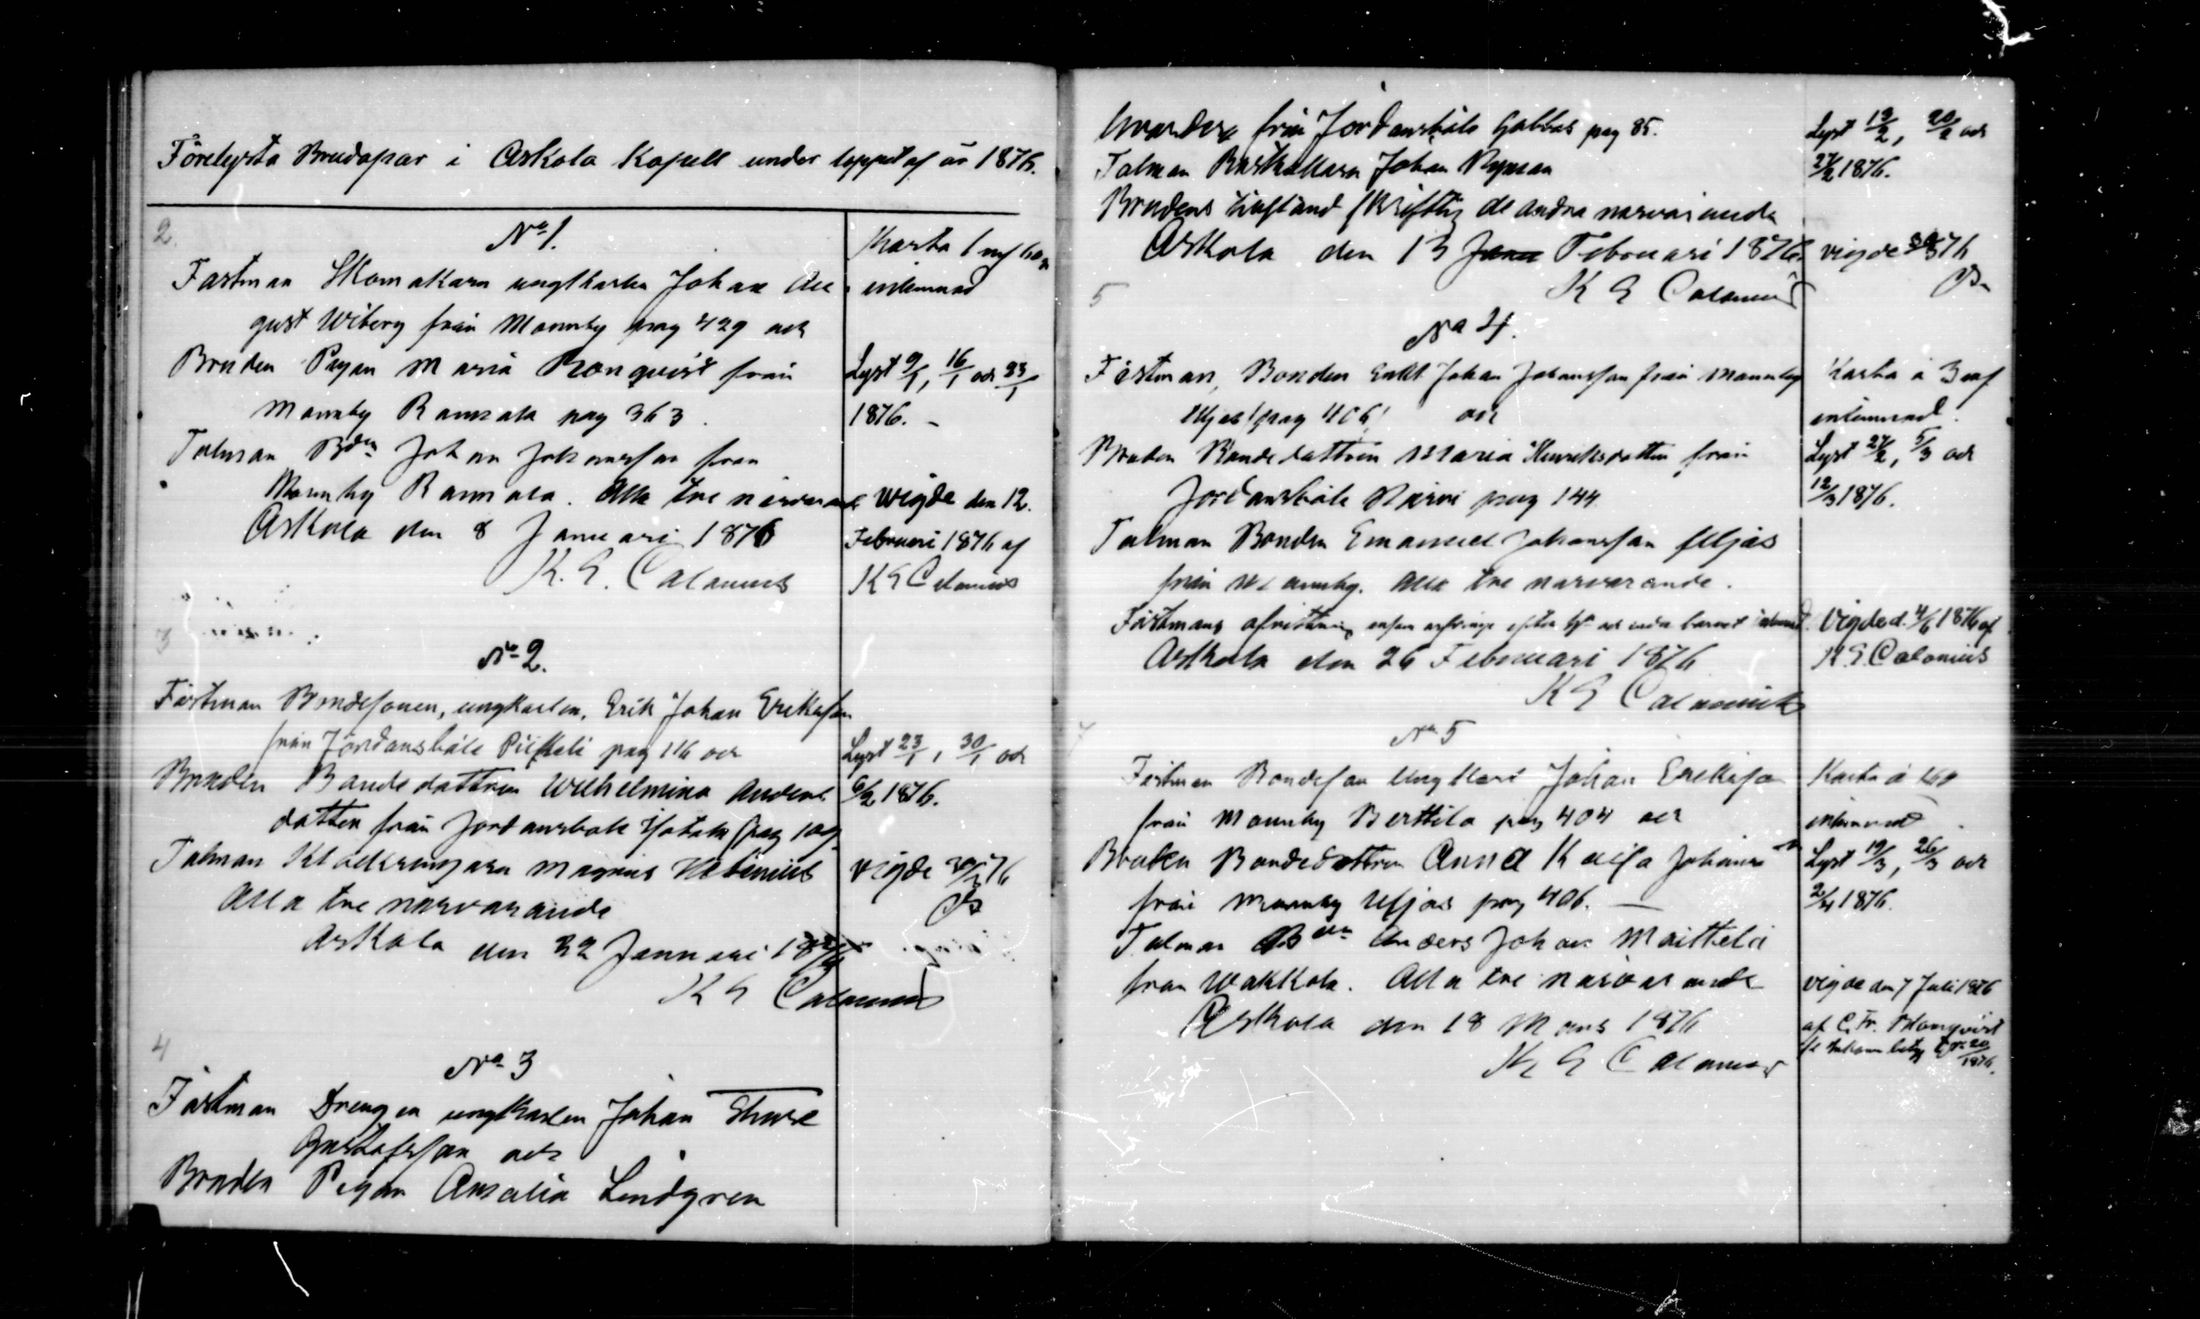 Förelysta Brudapar i Askola Kapell under loppet af år 1876.
2.
No 1.
Fästman Skomakaren ungkarlen Johan Au
gust Wiberg från Monnby pag 429 och
Bruden Pigan Maria Ronqvist från
Monnby Rannala pag 363.
Talman Bdn Johan Johansson från
Monnby Rannala. Alla tre närvarande
Askola den 8 Januari 1876
K. E. Calonius
Karta
inlemnad
Lyst 9/1, 16/1 och 23/1
1876. -
Wigde den 12.
Februari 1876 af
K E Calonius
3
No 2.
Fästman Bondesonen, ungkarlen, Erik Johan Eriksson
från Jordansböle Piiskeli pag 116 och
Bruden Bondedottren Wilhelmina Anders
dotter från Jordansböle pag
Talman Klockringaren Magnus
Alla tre närvarande
Askola den 22 Januari 1876
K E Calonius
Lyst 23/1, 30/1 och
6/2 1876.
vigde 76
4
No 3
Fästman Drengen ungkarlen Johan Thure
Gustafsson och
Bruden Pigan Amalia Lindgren
hvardera från Jordansböle Gabbas pag 85.
Talman Johan Nyman
Brudens skriftlig de andra närvarande
Askola den 13 Februari 1876.
K E Calonius
Lyst 13/2, 20/2 och
27/2 1876.
vigde 76
5
No 4.
Fästman, Bonden Enkl Johan Johansson från Monnby
Uljas (pag 406) och
Bruden Bondedottren Maria Henriksdotter från
Jordansböle Närvi pag 144
Talman Bonden Emanuel Johansson Uljas
från Monnby. Alla tre närvarande.
Fästmans
Askola den 26 Februari 1876
K E Calonius
Karta à 3 mf
inlemnad.
Lyst 27/2, 5/3 och
12/3 1876.
Vigde d. 4/6 1876 af
K. E. Calonius
No 5
Fästman Bondeson Ungkarl Johan Eriksson
från Monnby Berttila pag 404 och
Bruden Bondedottren Anna Kaisa Johansdr
från Monnby Uljas pag 406. —
Talman Bden Anders Johan Maittela
från Wakkola. Alla tre närvarande
Askola den 18 Mars 1876
K E Calonius
Karta à 160
inlemnad.
Lyst 19/3, 26/3 och
2/4 1876.
vigde den 7 Juli 1876
af C. Fr.